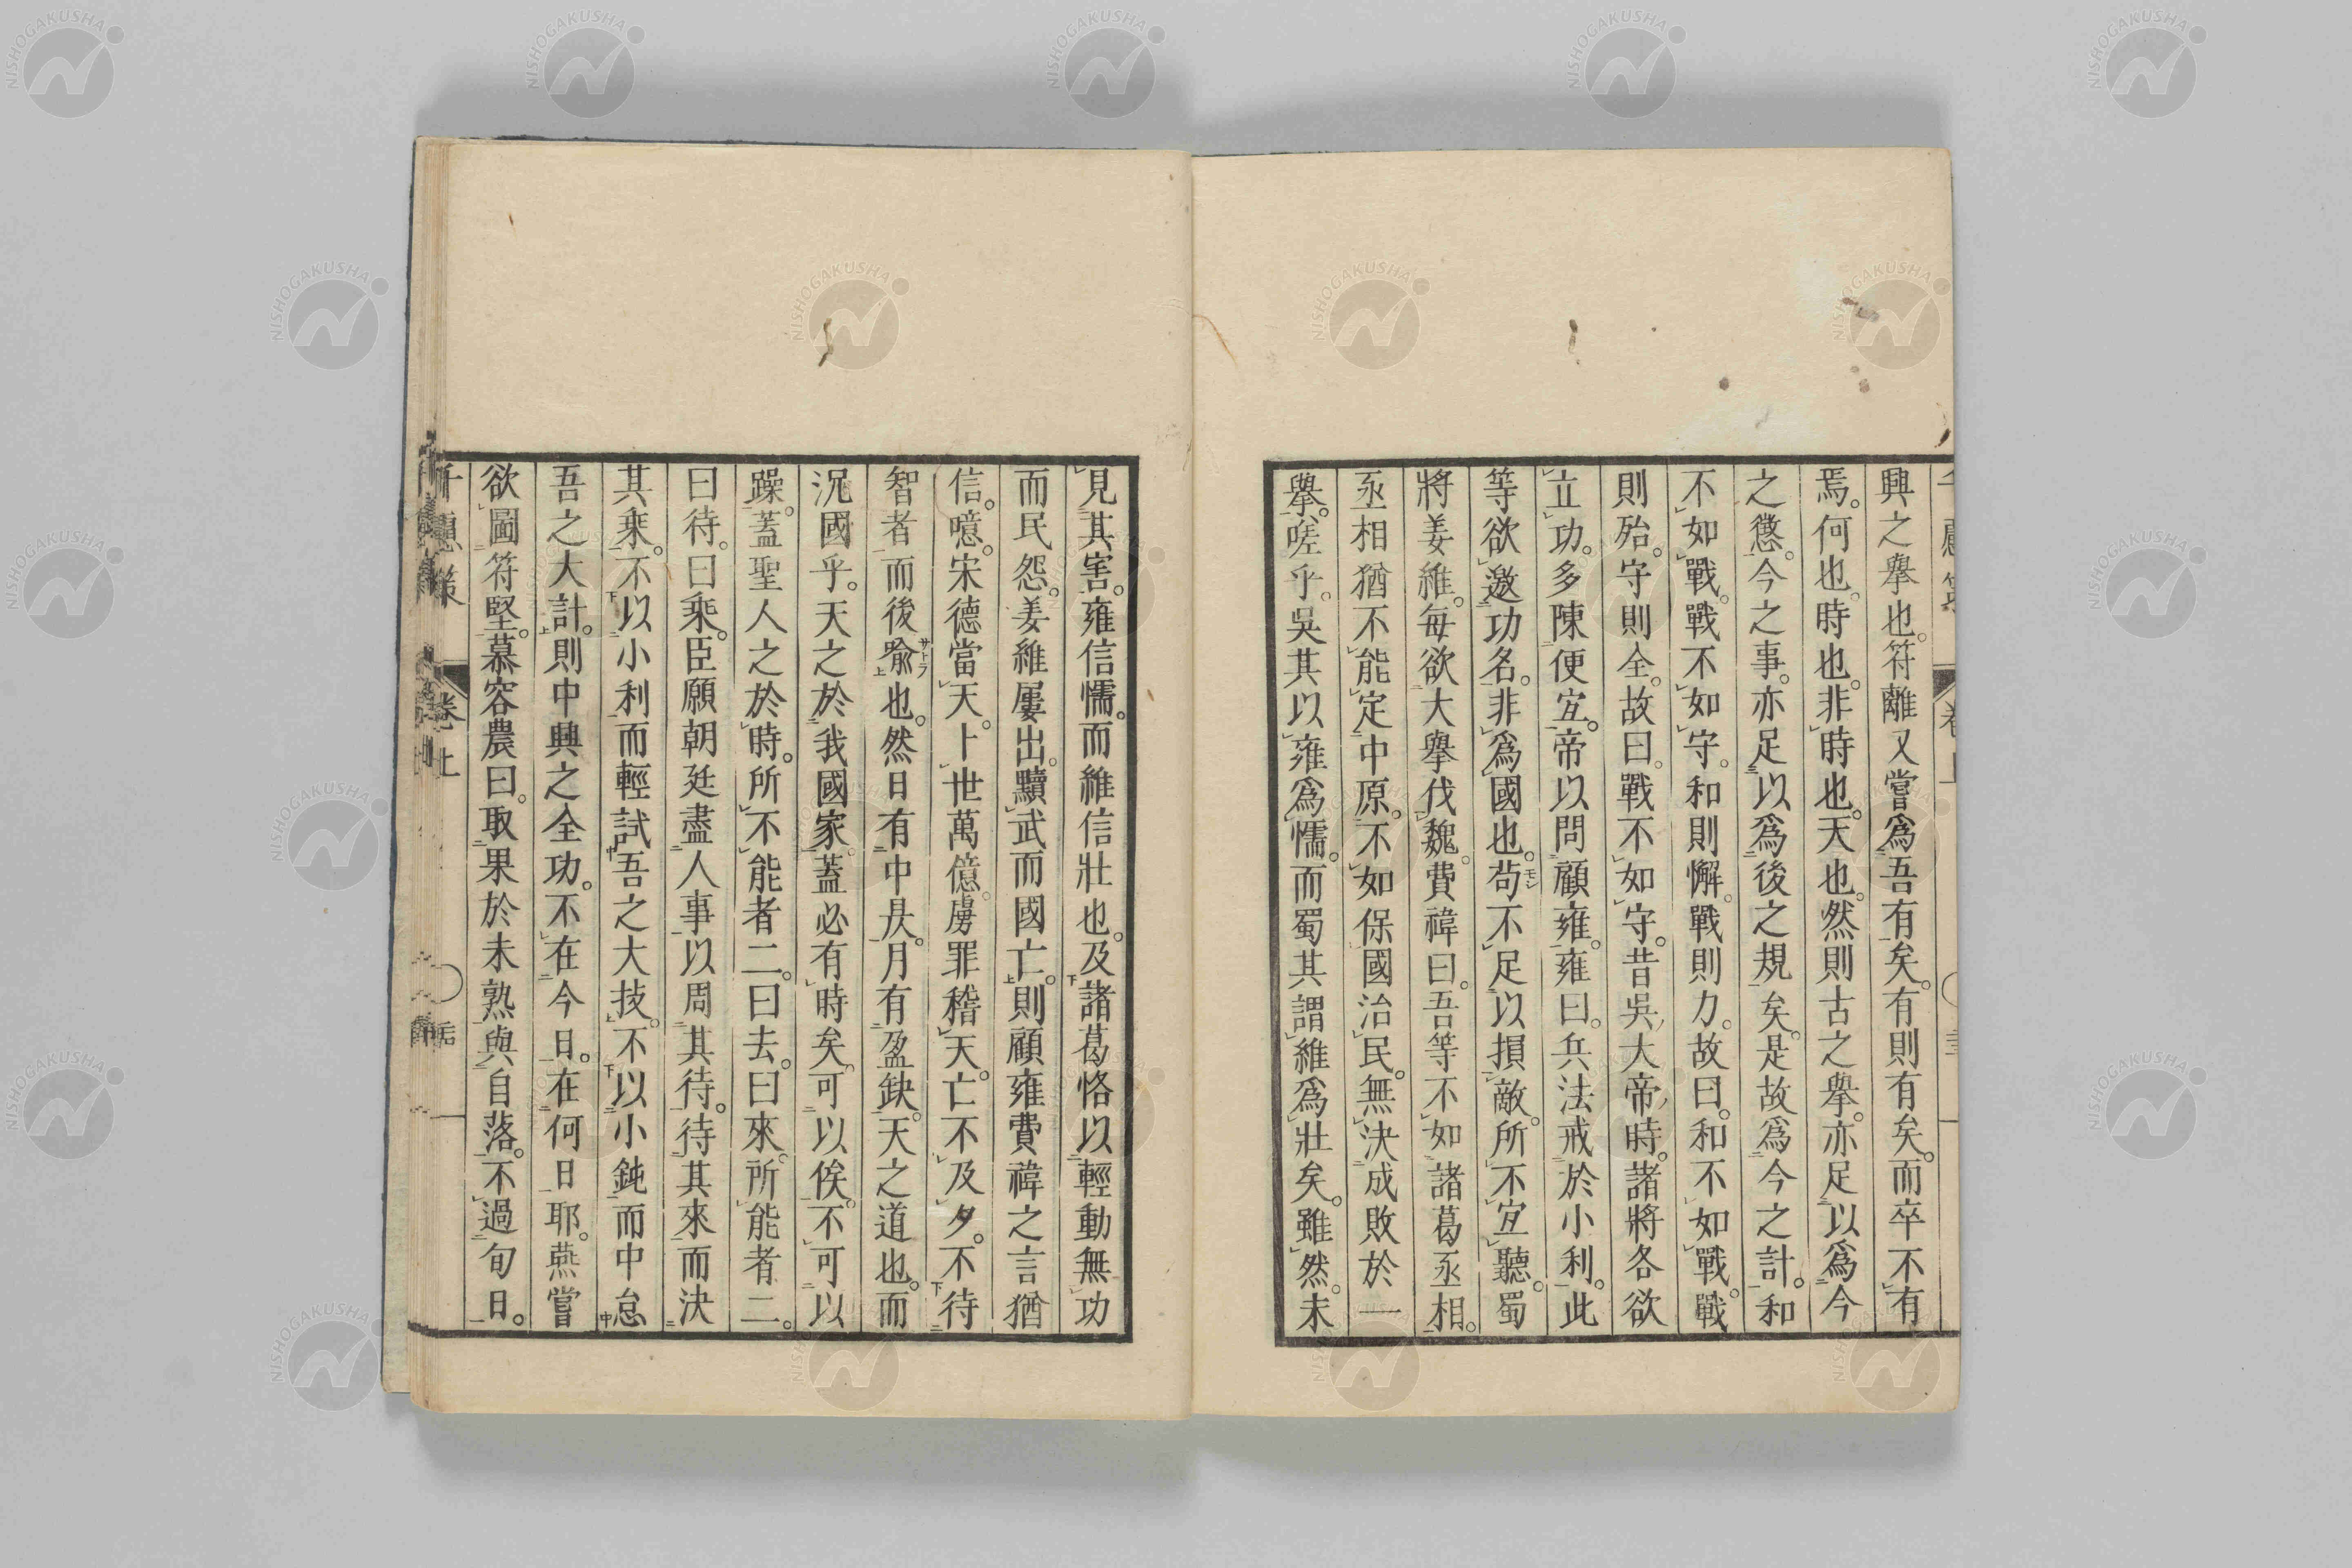 興之擧也。符離又嘗爲吾有矣。有則有矣。而卒不有
焉。何也。時也。非時也。天也。然則古之擧。亦足以爲今
之懲。今之事。亦足以爲後之規矣。是故爲今之計。和
不如戰。戰不如守。和則懈。戰則力。故曰。和不如戰。戰
則殆。守則全。故曰。戰不如守。昔吳大帝時。諸將各欲
立功。多陳便宜。帝以問顧雍。雍曰。兵法戒於小利。此
等欲邀功名。非爲國也。苟不足以損敵。所不宜聽。蜀
將姜維。每欲大擧伐魏。費禕曰。吾等不如諸葛丞相。
丞相猶不能定中原。不如保國治民。無決成敗於一
擧。嗟乎。吳其以雍爲懦。而蜀其謂維爲壯矣。雖然。未
見其害。雍信懦。而維信壯也。及諸葛恪以輕動無功
而民怨。姜維屢出。黷武而國亡。則顧雍費禕之言猶
信。噫。宋德當天。卜世萬億。虜罪稽天。亡不及夕。不待
智者而後喩也。然日有中昃。月有盈缺。天之道也。而
況國乎。天之於我國家。蓋必有時矣。可以俟。不可以
躁。蓋聖人之於時。所不能者二。曰去。曰來。所能者二。
曰待。曰乘。臣願朝廷盡人事以周其待。待其來而決
其乘。不以小利而輕試吾之大技。不以小鈍而中怠
吾之大計。則中興之全功。不在今日。在何日耶。燕嘗
欲圖符堅。慕容農曰。取果於未熟與自落。不過旬日。
千慮策 卷上